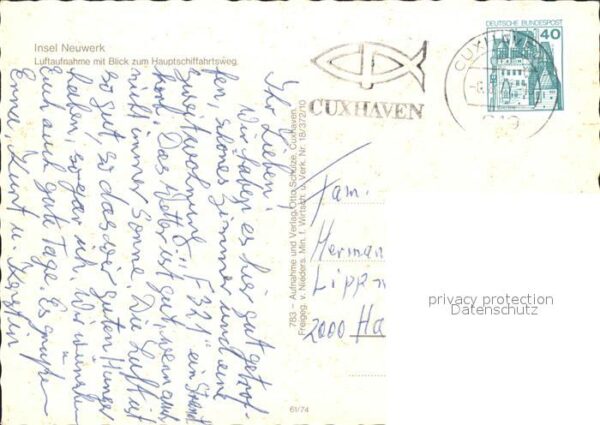 Insel Neuwerk
Luftaufnahme mit Blick zum Hauptschiffahrtsweg.
Ihr Lieben!
Wir haben es hier gut getrof-
fen, schönes Zimmer und eine
Zweitwohnung "F 321" ein Strand
korb. Das Wetter ist gut, wenn auch
nicht immer Sonne. Die Luft ist
so gut, so das wir guten Hunger
haben, sogar ich. Wir wünschen
Euch auch gute Tage. Es grüßen
Kurt u. Kerstin
783 - Aufnahme und Verlag Otto Schulze, Cuxhaven
Freigeg. v. Nieders. Min. f. Wirtsch. u. Verk. Nr. 18/372/10
61/74
CUXHAVEN
CUXHAVEN
DEUTSCHE BUNDESPOST
40
Fam.
Herman
Lippn
2000 Ha
privacy protection
Datenschutz